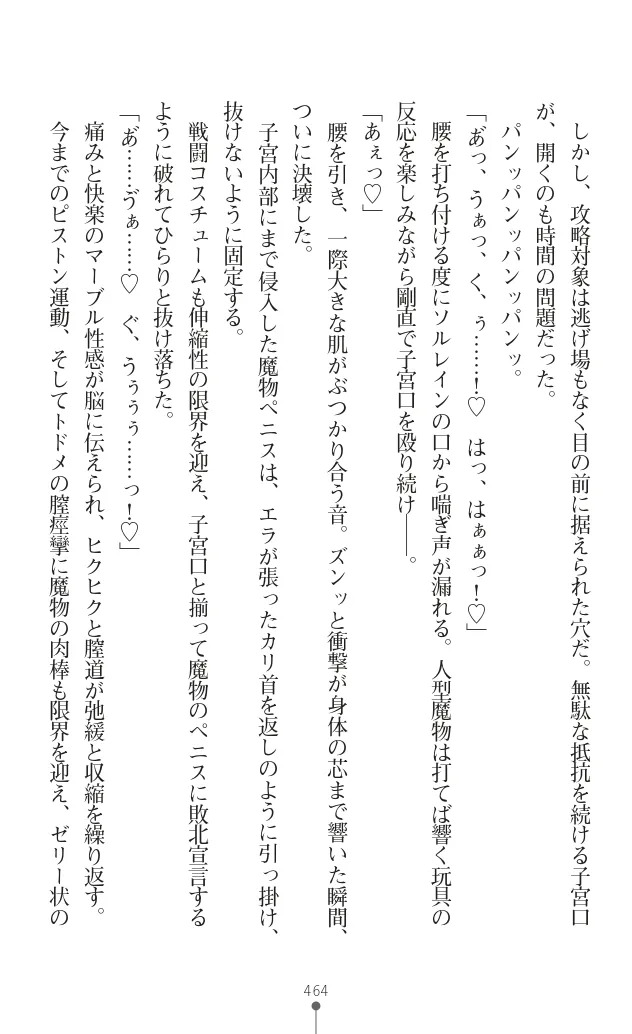 しかし、攻略対象は逃げ場もなく目の前に据えられた穴だ。無駄な抵抗を続ける子宮口
が、開くのも時間の問題だった。
パンッパンッパンッパンッ。
「あ゙っ、うぁっ、く、ぅ……！♡　はっ、はぁぁっ！♡」
腰を打ち付ける度にソルレインの口から喘ぎ声が漏れる。人型魔物は打てば響く玩具の
反応を楽しみながら剛直で子宮口を殴り続け――。
「あぇっ♡」
腰を引き、一際大きな肌がぶつかり合う音。ズンッと衝撃が身体の芯まで響いた瞬間、
ついに決壊した。
子宮内部にまで侵入した魔物ペニスは、エラが張ったカリ首を返しのように引っ掛け、
抜けないように固定する。
戦闘コスチュームも伸縮性の限界を迎え、子宮口と揃って魔物のペニスに敗北宣言する
ように破れてひらりと抜け落ちた。
「あ゙……ゔぁ……♡　ぐ、うぅぅぅ……っ！♡」
痛みと快楽のマーブル性感が脳に伝えられ、ヒクヒクと膣道が弛緩と収縮を繰り返す。
今までのピストン運動、そしてトドメの膣痙攣に魔物の肉棒も限界を迎え、ゼリー状の
464